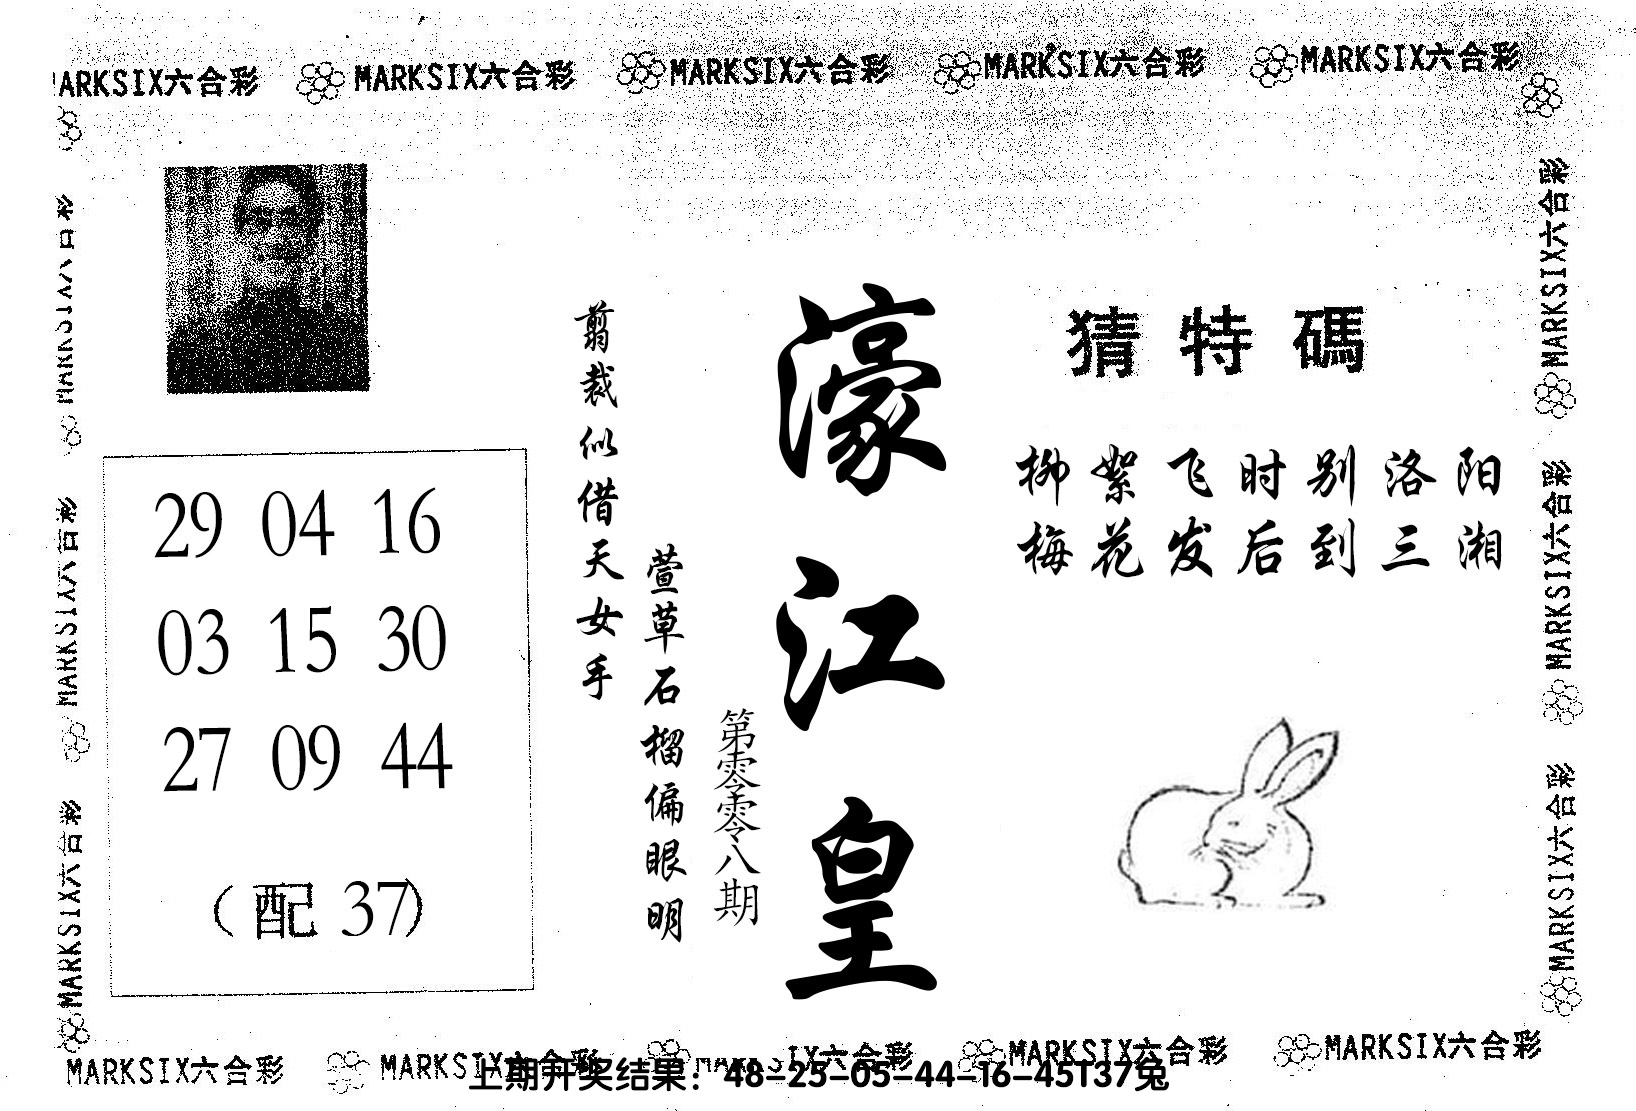 MARKSIX六合彩 MARKSIX六合彩 MARKSIX六合彩 MARKSIX六合彩
猜特碼
柳絮飞时别洛阳
梅花发后到三湘
濠江皇
第零零八期
萱草石榴偏眼明
剪裁似借天女手
29 04 16
03 15 30
27 09 44
（配 37）
MARKSIX六合彩
MARKSIX六合彩
MARKSIX六合彩
MARKSIX六合彩
MARKSIX六合彩
MARKSIX六合彩 MARKSIX六合彩 MARKSIX六合彩 MARKSIX六合彩
上期开奖结果：48-25-05-44-16-45T37兔